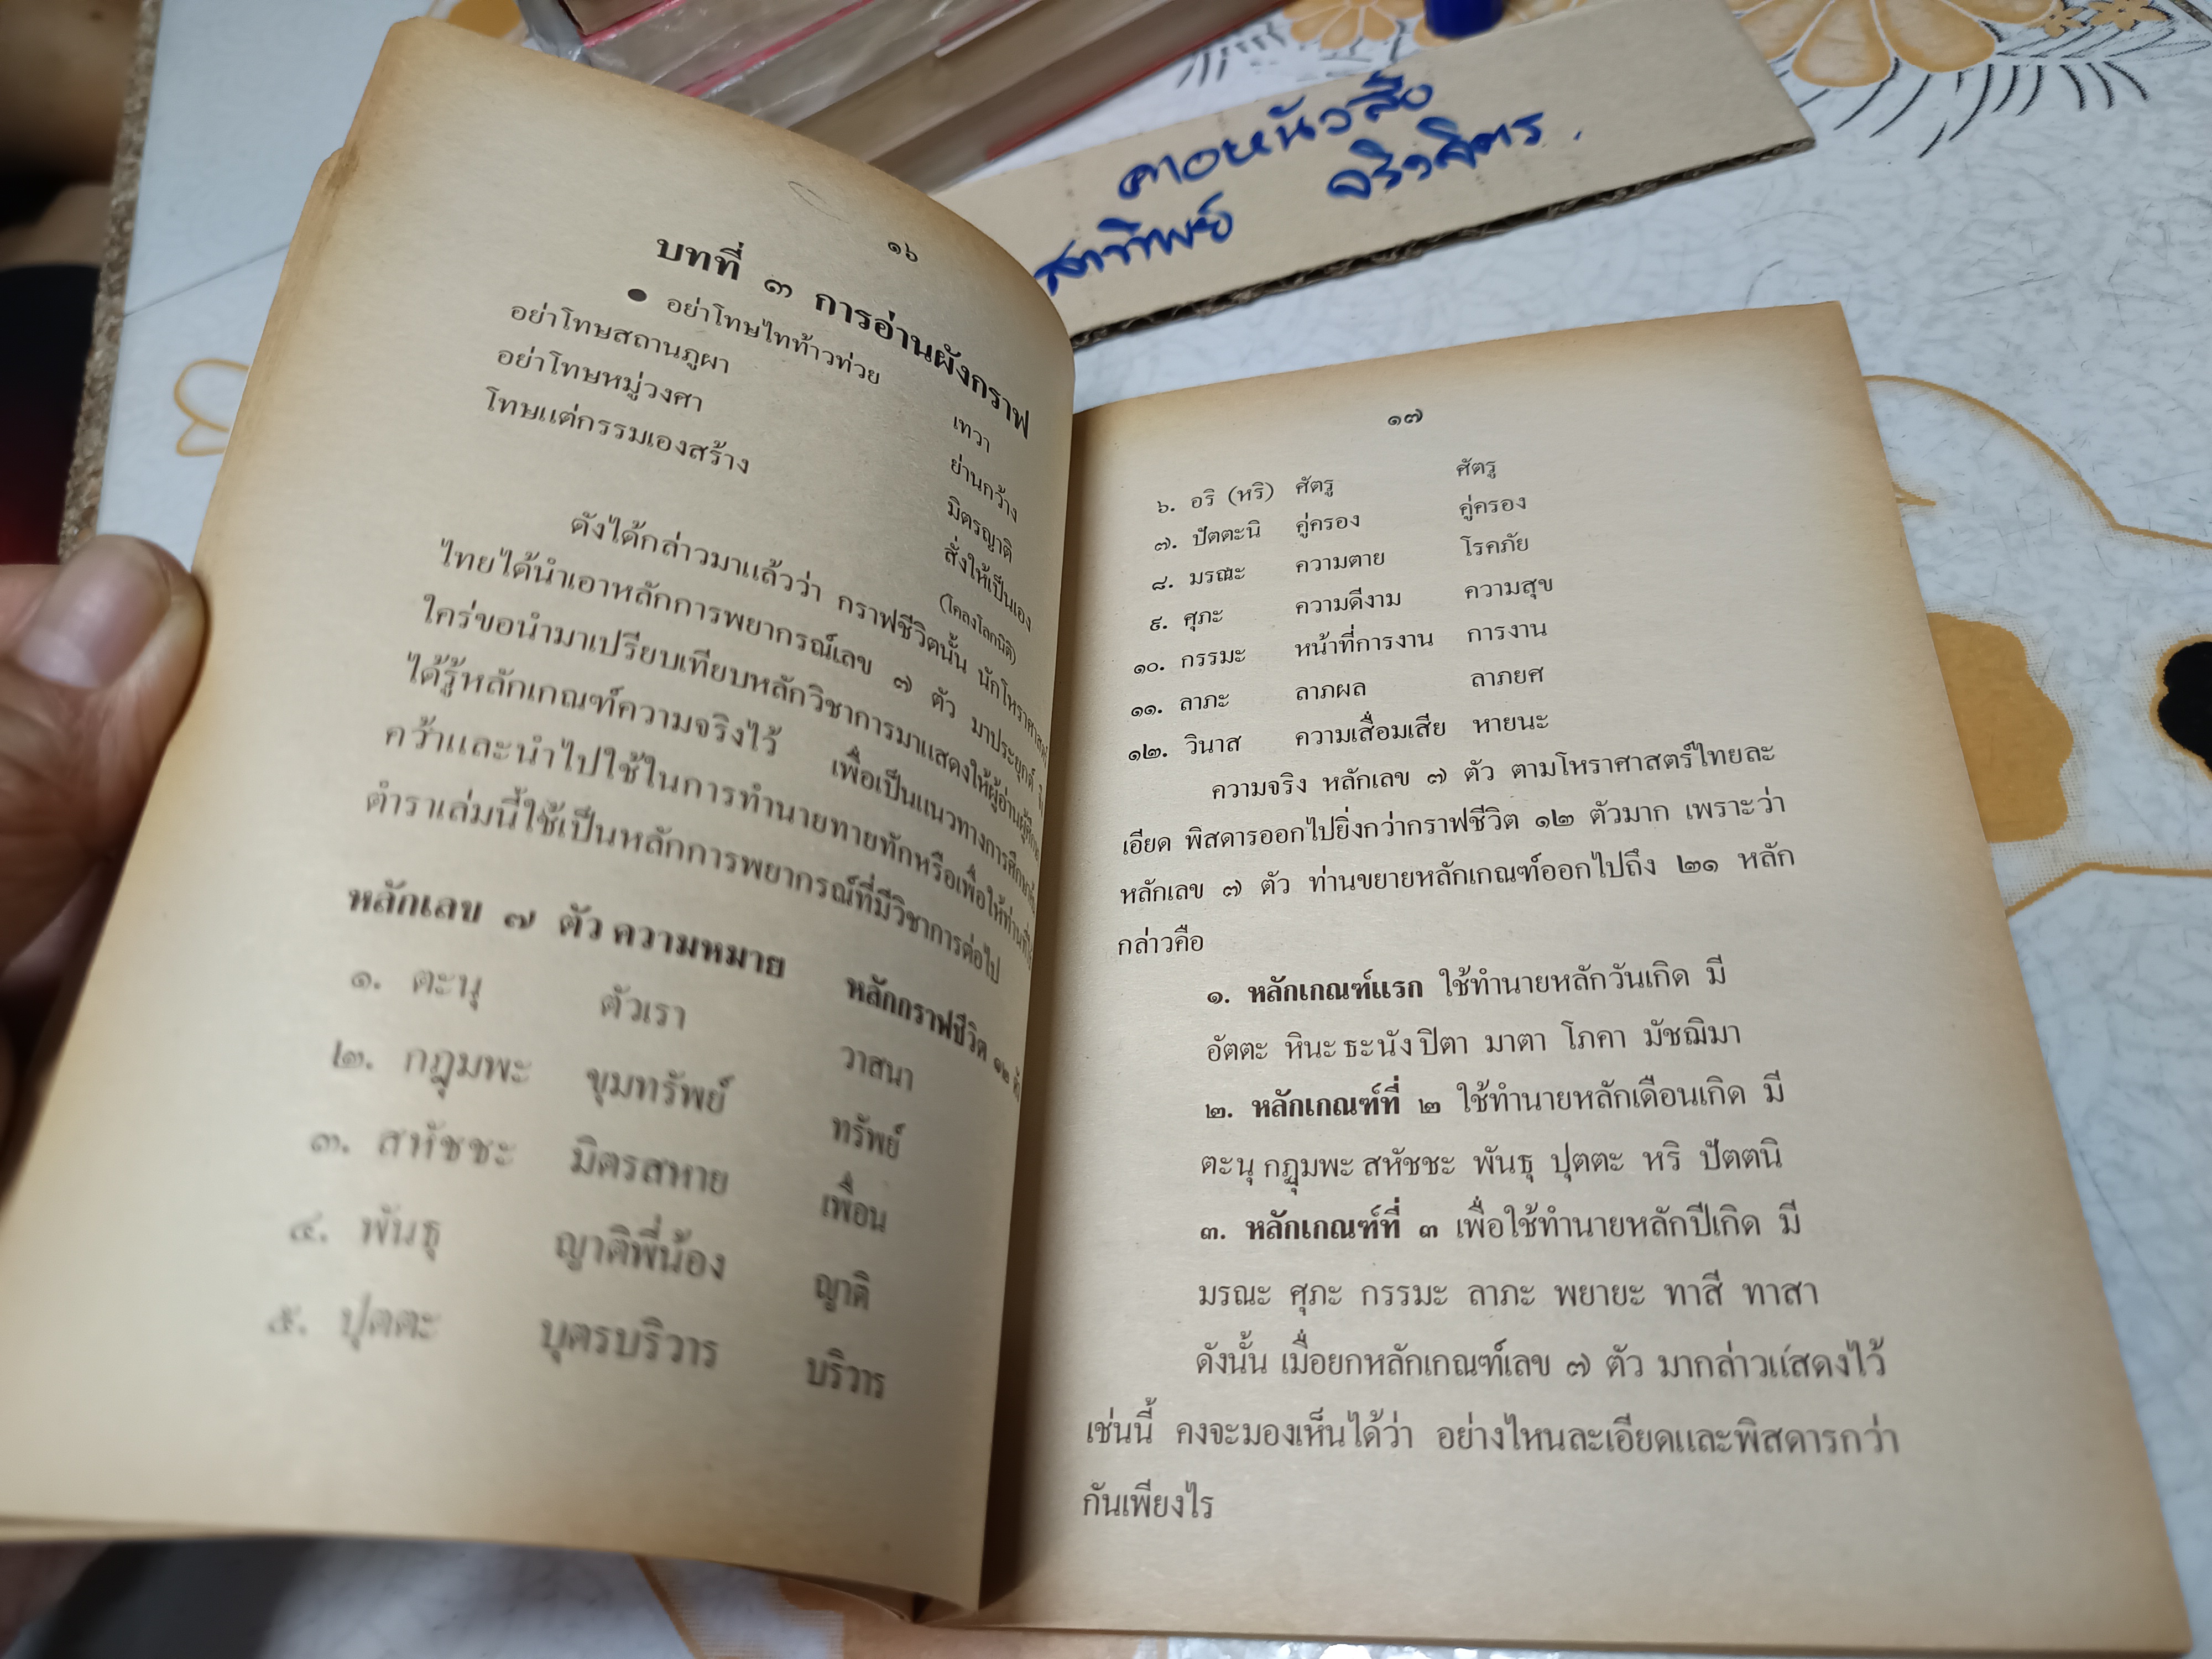 คาวหนังสือ
สาริทพย์ จริงจิตร.
๑๖
บทที่ ๓ การอ่านผังกราฟ
● อย่าโทษไทท้าวท่วย เทวา
อย่าโทษสถานภูผา ย่านกว้าง
อย่าโทษหมู่วงศา มิตรญาติ
โทษแต่กรรมเองสร้าง สั่งให้เป็นเอง
(โคลงโลกนิติ)
ดังได้กล่าวมาแล้วว่า กราฟชีวิตนั้น นักโหราศาสตร์
ไทยได้นำเอาหลักการพยากรณ์เลข ๗ ตัว มาประยุกต์
ใคร่ขอนำมาเปรียบเทียบหลักวิชาการมาแสดงให้ผู้อ่าน
ได้รู้หลักเกณฑ์ความจริงไว้ เพื่อเป็นแนวทางการศึกษา
คว้าและนำไปใช้ในการทำนายทายทักหรือเพื่อให้ท่านที่
ตำราเล่มนี้ใช้เป็นหลักการพยากรณ์ที่มีวิชาการต่อไป
หลักเลข ๗ ตัว ความหมาย หลักกราฟชีวิต ๑๒
๑. ตะนุ ตัวเรา วาสนา
๒. กฎุมพะ ขุมทรัพย์ ทรัพย์
๓. สหัชชะ มิตรสหาย เพื่อน
๔. พันธุ ญาติพี่น้อง ญาติ
๕. ปุตตะ บุตรบริวาร บริวาร
๑๗
๖. อริ (หริ) ศัตรู ศัตรู
๗. ปัตตะนิ คู่ครอง คู่ครอง
๘. มรณะ ความตาย โรคภัย
๙. ศุภะ ความดีงาม ความสุข
๑๐. กรรมะ หน้าที่การงาน การงาน
๑๑. ลาภะ ลาภผล ลาภยศ
๑๒. วินาส ความเสื่อมเสีย หายนะ
ความจริง หลักเลข ๗ ตัว ตามโหราศาสตร์ไทยละ
เอียด พิสดารออกไปยิ่งกว่ากราฟชีวิต ๑๒ ตัวมาก เพราะว่า
หลักเลข ๗ ตัว ท่านขยายหลักเกณฑ์ออกไปถึง ๒๑ หลัก
กล่าวคือ
๑. หลักเกณฑ์แรก ใช้ทำนายหลักวันเกิด มี
อัตตะ หินะ ธะนัง ปิตา มาตา โภคา มัชฌิมา
๒. หลักเกณฑ์ที่ ๒ ใช้ทำนายหลักเดือนเกิด มี
ตะนุ กฎุมพะ สหัชชะ พันธุ ปุตตะ หริ ปัตตนิ
๓. หลักเกณฑ์ที่ ๓ เพื่อใช้ทำนายหลักปีเกิด มี
มรณะ ศุภะ กรรมะ ลาภะ พยายะ ทาสี ทาสา
ดังนั้น เมื่อยกหลักเกณฑ์เลข ๗ ตัว มากล่าวแสดงไว้
เช่นนี้ คงจะมองเห็นได้ว่า อย่างไหนละเอียดและพิสดารกว่า
กันเพียงไร